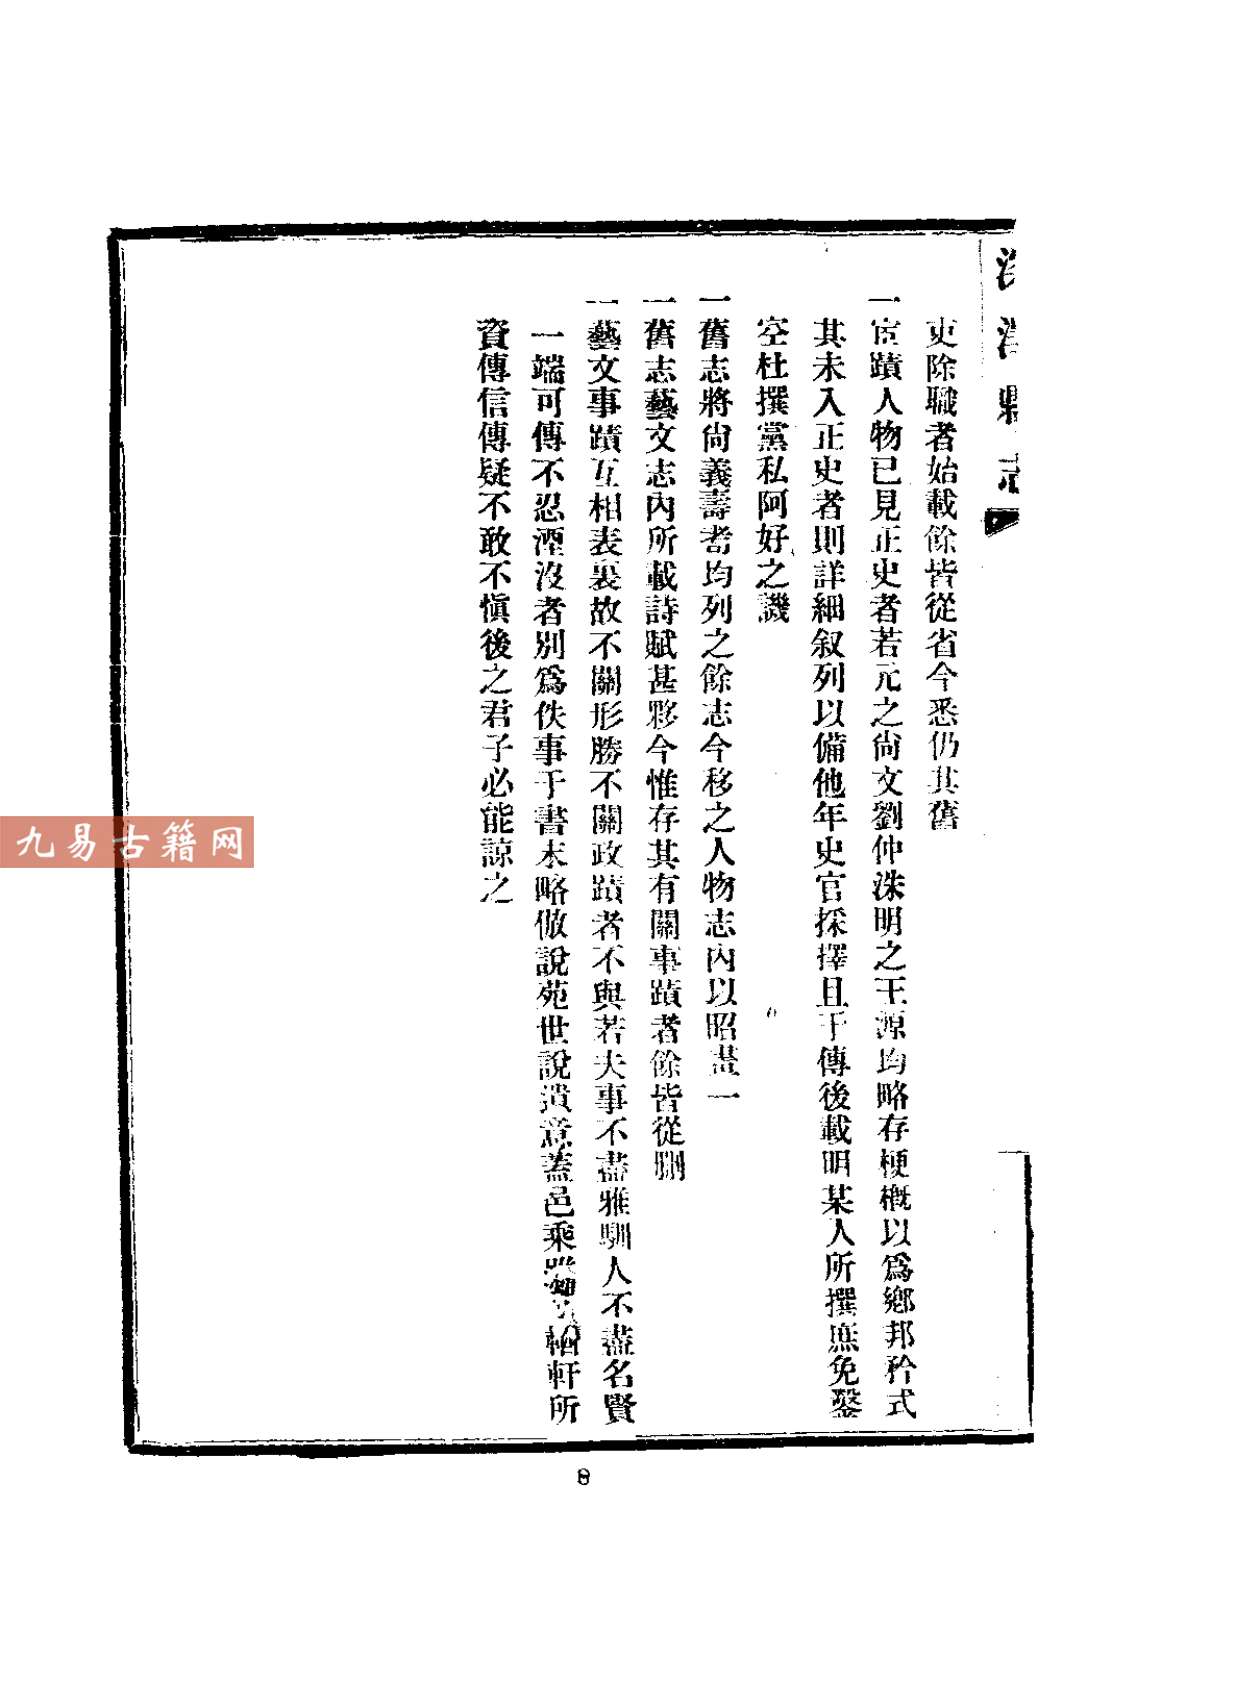 縣志
吏除職者始載餘皆從省今悉仍其舊
一宦蹟人物已見正史者若元之尙文劉仲洙明之王源均略存梗概以爲鄉邦矜式
其未入正史者則詳細叙列以備他年史官採擇且于傳後載明某人所撰庶免鑿
空杜撰黨私阿好之譏
一舊志將尙義壽耆均列之餘志今移之人物志內以昭畫一
一舊志藝文志內所載詩賦甚夥今惟存其有關事蹟者餘皆從刪
一藝文事蹟互相表裏故不關形勝不關政蹟者不與若夫事不盡雅馴人不盡名賢
一端可傳不忍湮沒者別爲佚事于書末略倣說苑世說遺意蓋邑乘軒所
資傳信傳疑不敢不愼後之君子必能諒之
九易古籍网
8